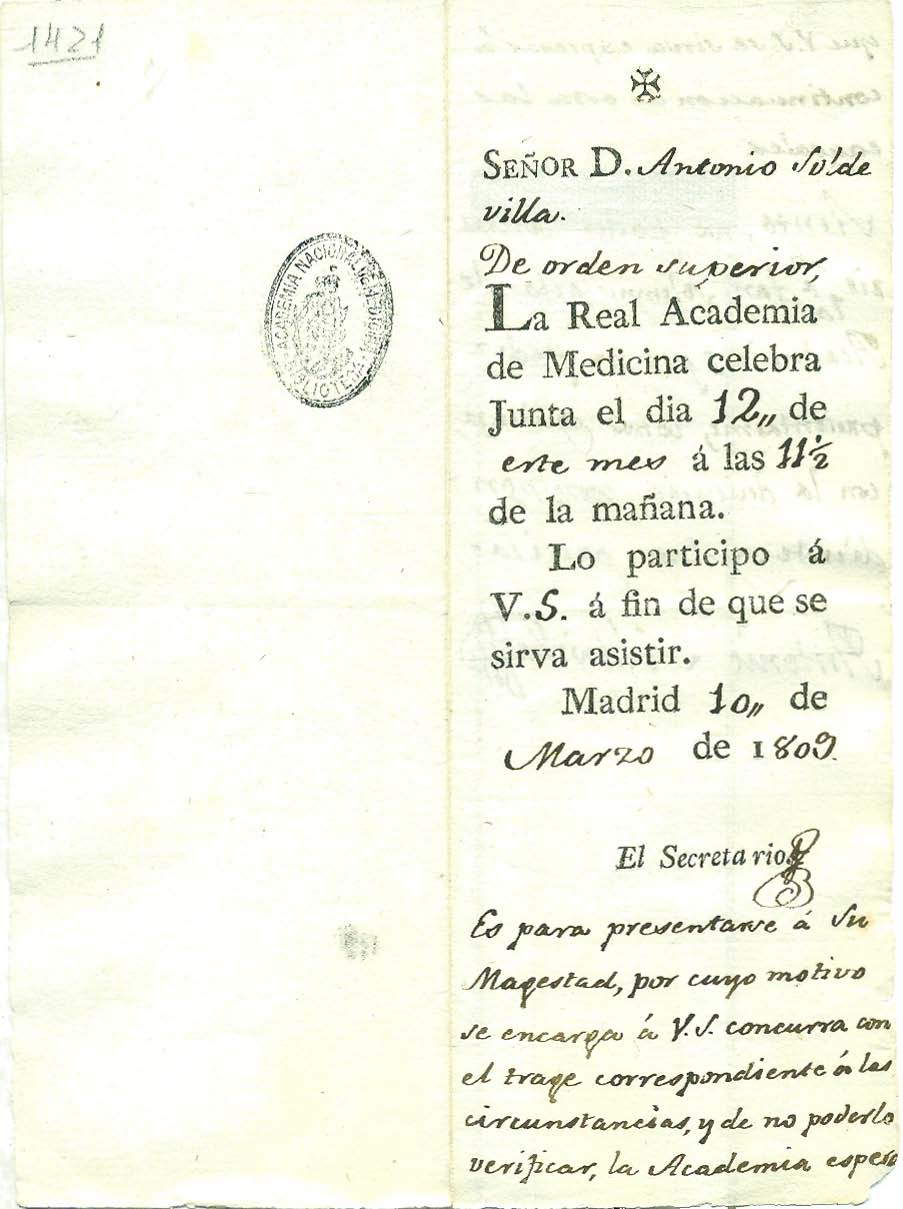 1421
SEÑOR D. Antonio Solde
villa.
De orden superior,
La Real Academia
de Medicina celebra
Junta el dia 12,, de
este mes á las 11 1/2
de la mañana.
Lo participo á
V.S. á fin de que se
sirva asistir.
Madrid 10,, de
Marzo de 1809.
El Secretario
Es para presentarse á Su
Magestad, por cuyo motivo
se encarga á V.S. concurra con
el trage correspondiente á las
circunstancias, y de no poderlo
verificar, la Academia espera
ACADEMIA NACIONAL DE MEDICINA
BIBLIOTECA